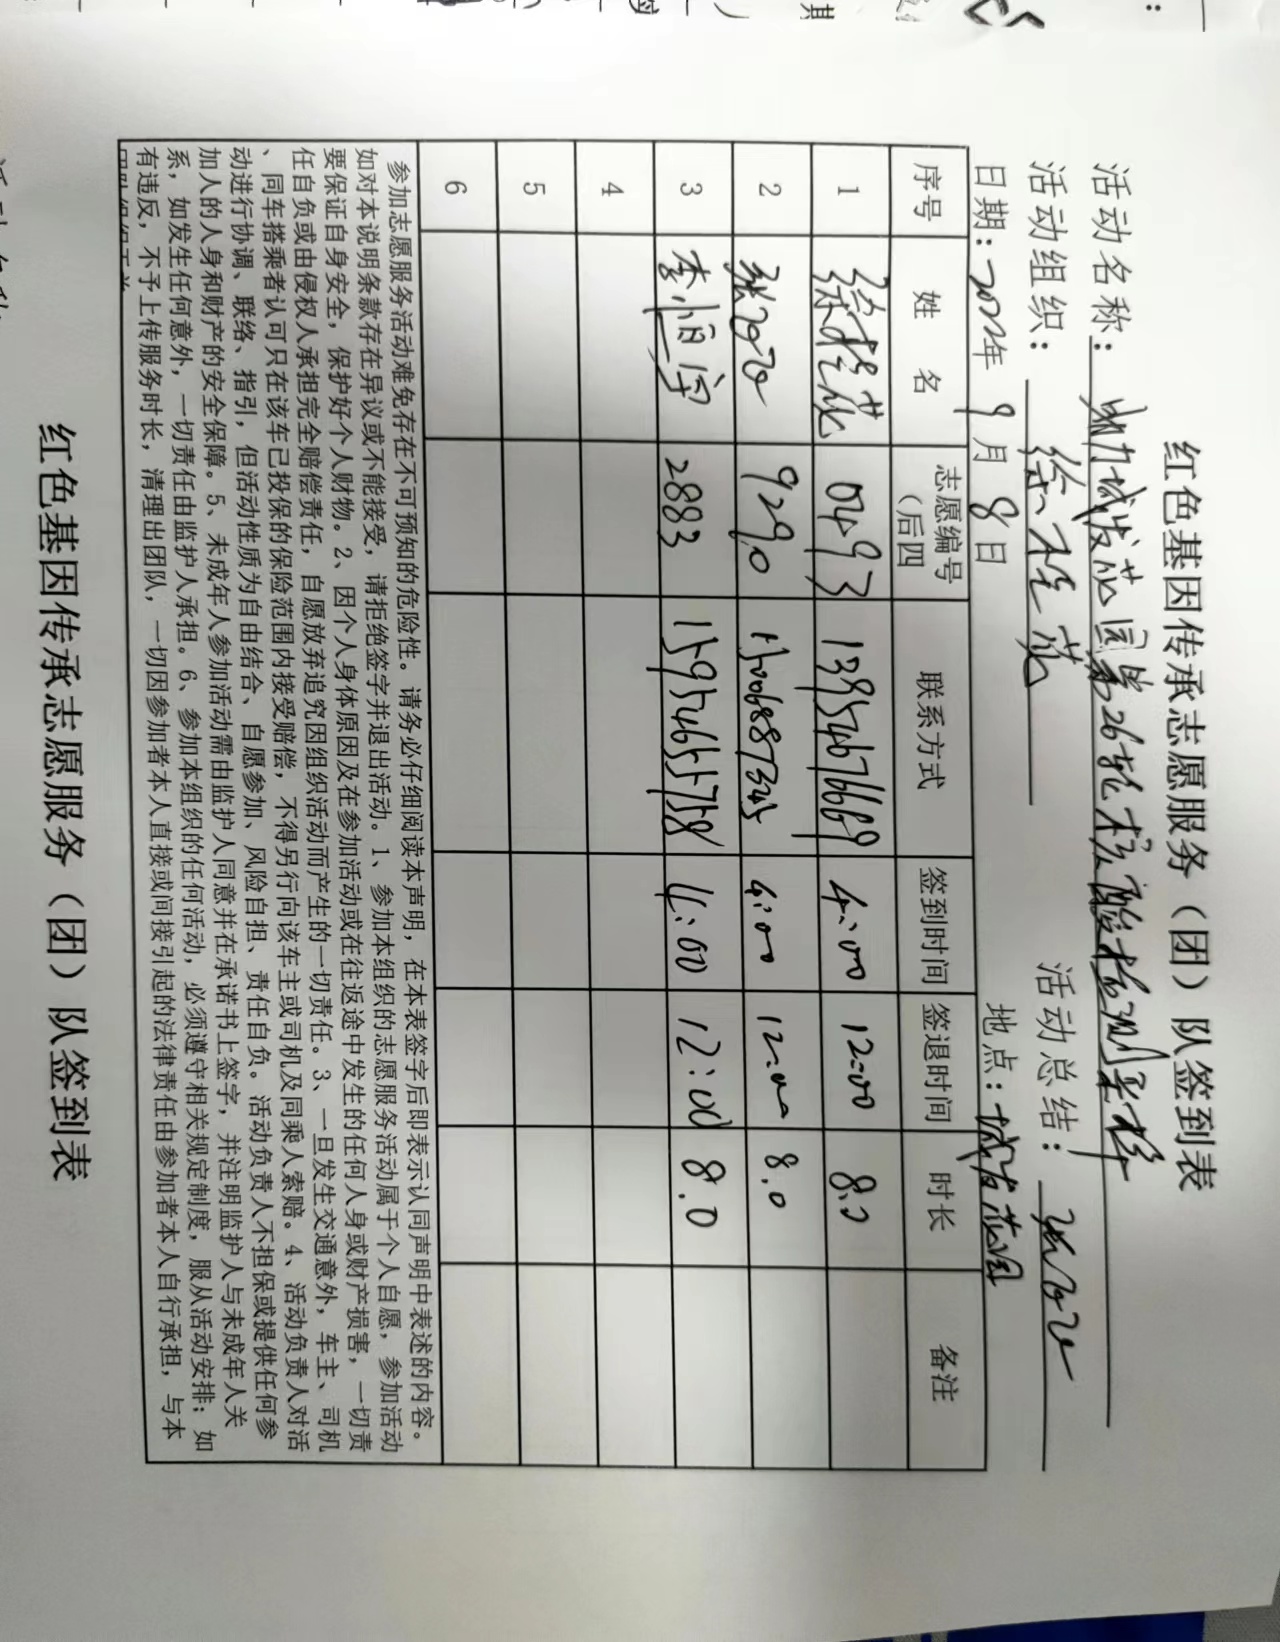 红色基因传承志愿服务（团）队签到表
活动名称：城发蓝园第26轮核酸检测采样
活动组织：徐桂花 活动总结：
日期：2022年9月8日 地点：城发蓝园
序号 姓 名 志愿编号（后四 联系方式 签到时间 签退时间 时长 备注
1 徐桂花 0493 13954676669 4:00 12:00 8.0
2 9290 4:00 12:00 8.0
3 李恒宇 2883 15954655758 4:00 12:00 8.0
4
5
6
参加志愿服务活动难免存在不可预知的危险性。请务必仔细阅读本声明，在本表签字后即表示认同声明中表述的内容。
如对本说明条款存在异议或不能接受，请拒绝签字并退出活动。1、参加本组织的志愿服务活动属于个人自愿，参加活动
要保证自身安全，保护好个人财物。2、因个人身体原因及在参加活动或在往返途中发生的任何人身或财产损害，一切责
任自负或由侵权人承担完全赔偿责任，自愿放弃追究因组织活动而产生的一切责任。3、一旦发生交通意外，车主、司机
、同车搭乘者认可只在该车已投保的保险范围内接受赔偿，不得另行向该车主或司机及同乘人索赔。4、活动负责人对活
动进行协调、联络、指引，但活动性质为自由结合、自愿参加、风险自担、责任自负。活动负责人不担保或提供任何参
加人的人身和财产的安全保障。5、未成年人参加活动需由监护人同意并在承诺书上签字，并注明监护人与未成年人关
系，如发生任何意外，一切责任由监护人承担。6、参加本组织的任何活动，必须遵守相关规定制度，服从活动安排；如
有违反，不予上传服务时长，清理出团队，一切因参加者本人直接或间接引起的法律责任由参加者本人自行承担，与本
红色基因传承志愿服务（团）队签到表